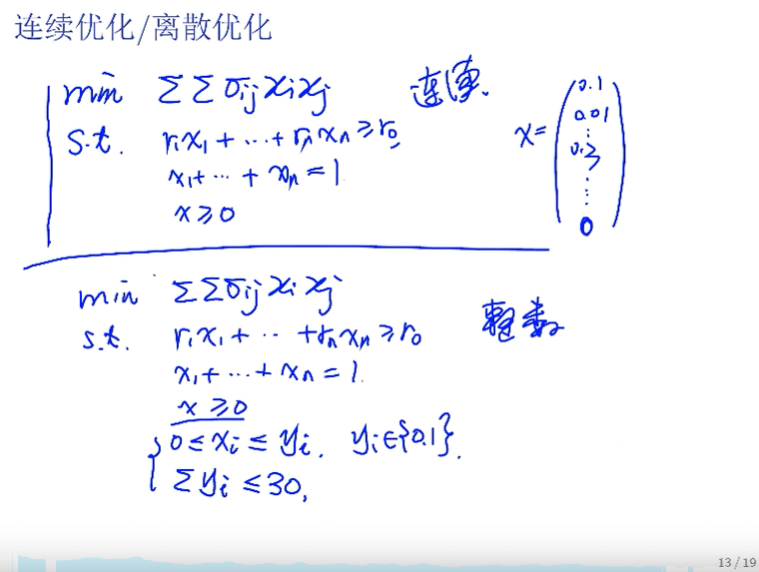 连续优化/离散优化
min ΣΣσijxixj 连续.
s.t. r1x1+⋯+rnxn≥r0
x1+⋯+xn=1
x≥0
x=(0.1
0.01
⋮
0.3
⋮
0)
min ΣΣσijxixj
s.t. r1x1+⋯+rnxn≥r0 整数
x1+⋯+xn=1.
x≥0
{0≤xi≤yi. yi∈{0.1}.
Σyi≤30,
13 / 19